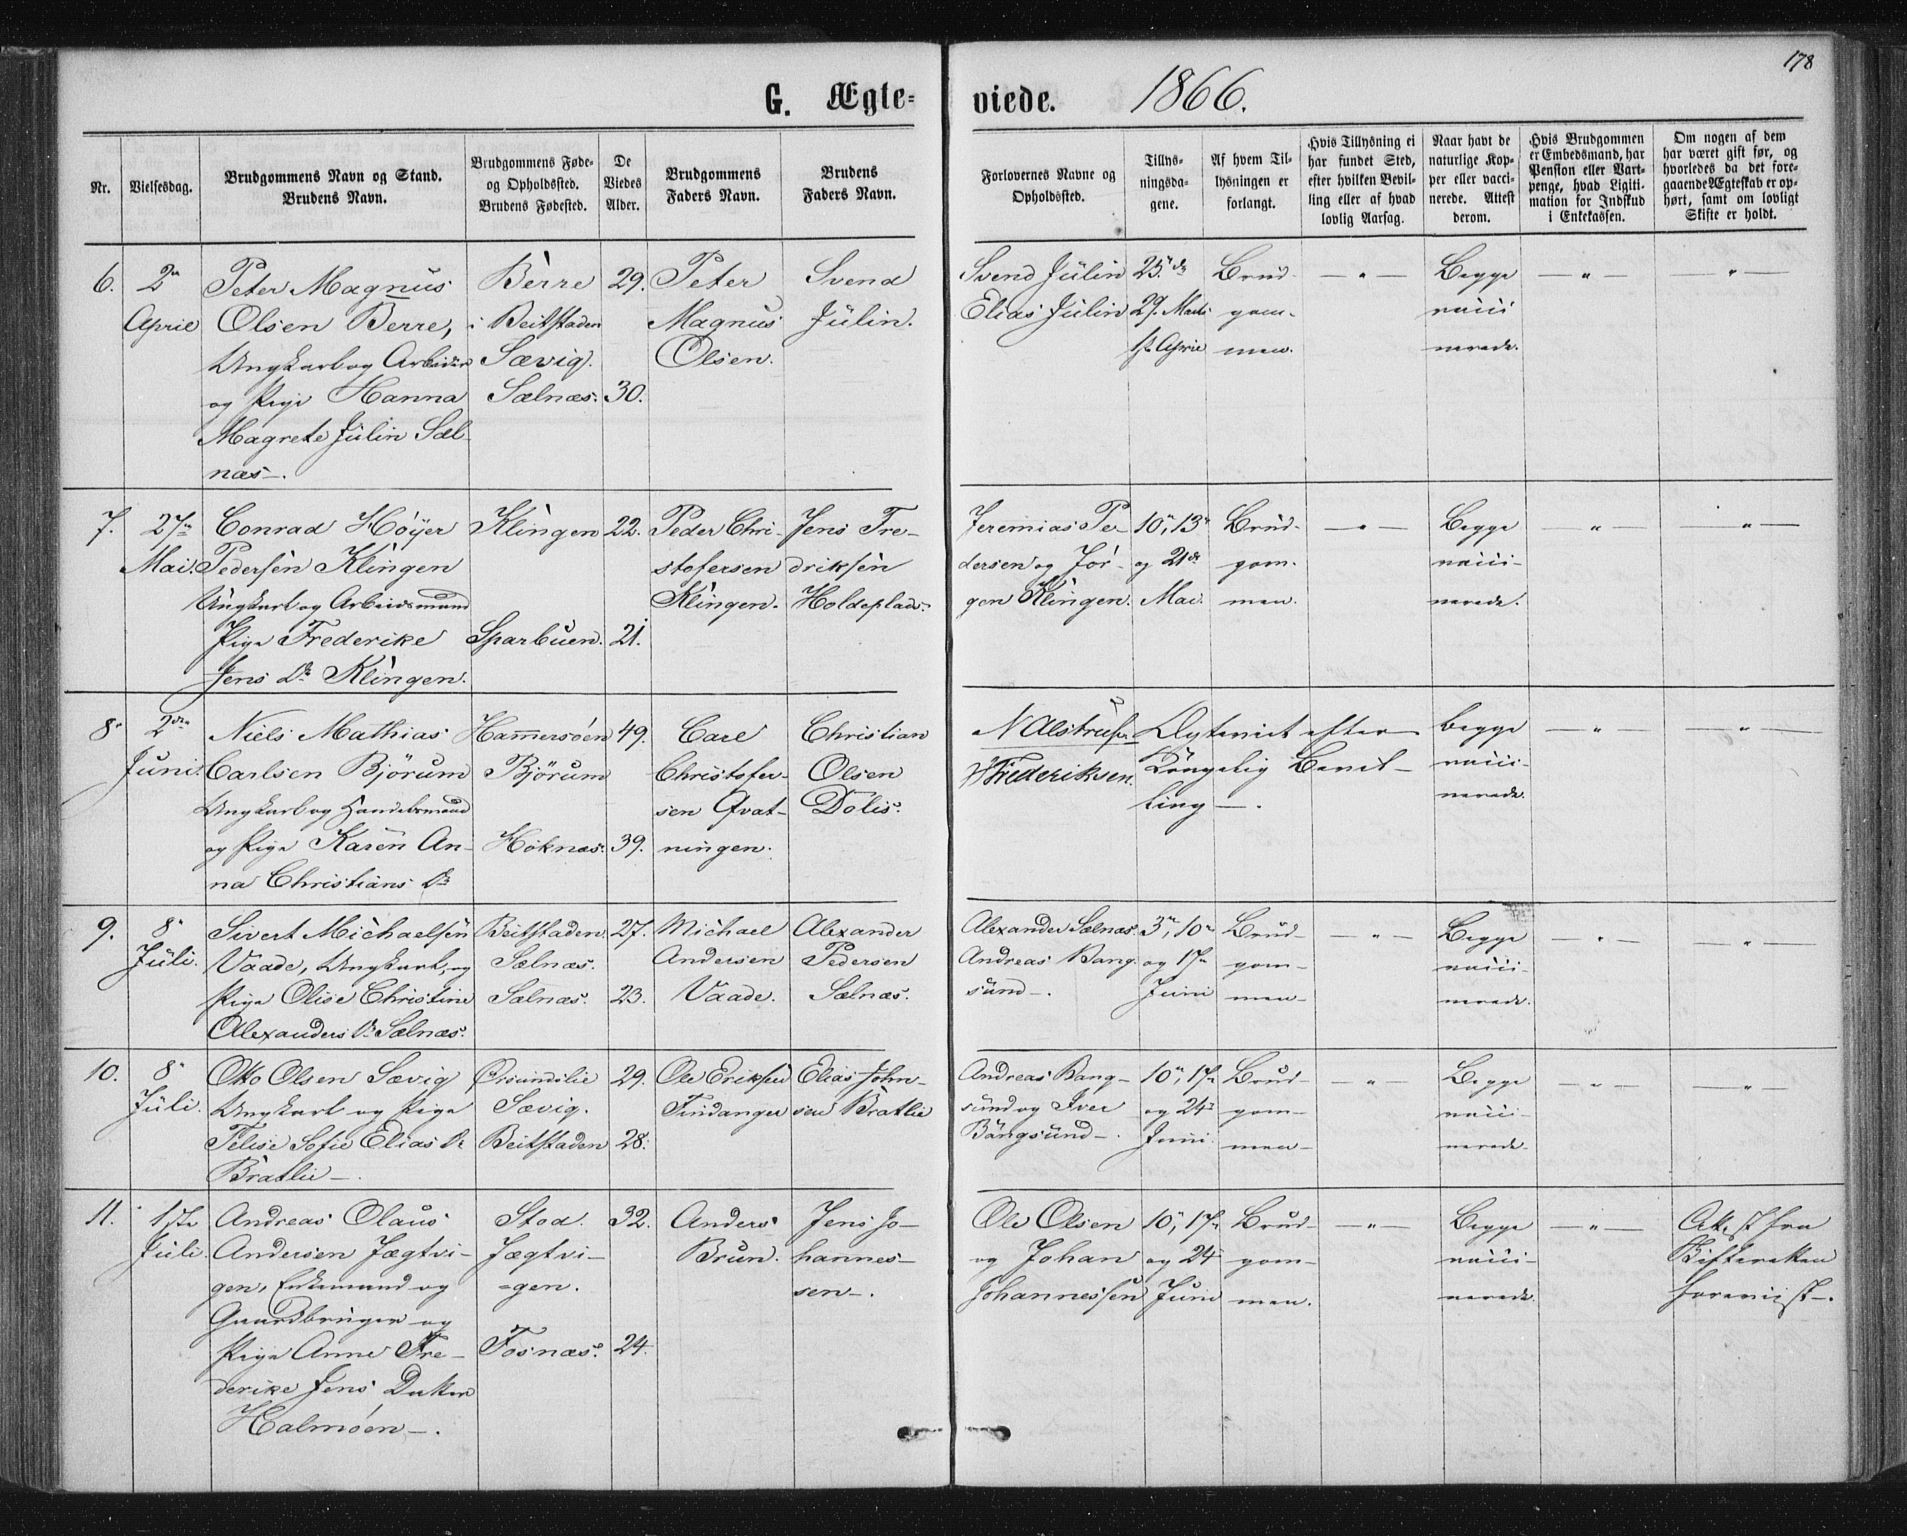 178
G. Ægte= viede. 1866.
Nr.
Vielsesdag.
Brudgommens Navn og Stand.
Brudens Navn.
Brudgommens Føde-
og Opholdssted.
Brudens Fødested.
De
Viedes
Alder.
Brudgommens
Faders Navn.
Brudens
Faders Navn.
Forlovernes Navne og
Opholdssted.
Tillys-
ningsda-
gene.
Af hvem Til-
lysningen er
forlangt.
Hvis Tillysning ei
har fundet Sted,
efter hvilken Bevil-
ling eller af hvad
lovlig Aarsag.
Naar havt de
naturlige Kop-
per eller vacci-
nerede. Attest
derom.
Hvis Brudgommen
er Embedsmand, har
Pension eller Vart-
penge, hvad Ligiti-
mation for Indskud
i Enkekassen.
Om nogen af dem
har været gift før, og
hvorledes da det fore-
gaaende Ægteskab er op-
hørt, samt om lovligt
Skifte er holdt.
6.
2n
April
Peter Magnus
Olsen Berre,
Ungkarl og Arbeider
og Pige Hanna
Magrete Julin Sæl-
næs -.
Berre
i Beitstaden
Sævig.
Sælnæs.
29.
30.
Peter
Magnus
Olsen.
Svend
Julin.
Svend Julin
Elias Julin
25de
29. Marts
1st April
Brud-
gom-
men.
— " —
Begge
vacci
nerede.
— " —
— " —
7.
27n
Mai.
Conrad Høyer
Pedersen Klingen
Ungkarl og Arbeidsmand
Pige Frederike
Jens Dr Klingen.
Klingen
Sparbuen.
22.
21.
Peder Chri-
stofersen
Klingen.
Jens Fre-
driksen
Holdeplads.
Jeremias Pe-
dersen og Jør-
gen Klingen.
10n, 13n
og 21de
Mai.
Brud-
gom-
men.
— " —
Begge
vacci-
nerede.
— " —
— " —
8n
2den
Juni.
Niels Mathias
Carlsen Bjørum
Ungkarl og Handelsmand
og Pige Karen An-
na Christians Dr
Hammersøen
Bjørum
Høknæs.
49.
39.
Carl
Christofer-
sen Qvat-
ningen.
Christian
Olsen
Dolis.
N Alstrup
Frederiksen.
efter
Kongelig Bevil-
ling —.
Begge
vacci-
nerede.
— " —
— " —
9.
8n
Juli.
Sivert Michaelsen
Vaade, Ungkarl, og
Pige Olise Christine
Alexanders Dr Sælnæs.
Beitstaden.
Sælnæs.
Sælnæs.
27.
23.
Michael
Andersen
Vaade.
Alexander
Pedersen
Sælnæs.
Alexander Sælnæs.
Andreas Bang-
sund -.
3n, 10n
og 17n
Juni
Brud-
gom-
men-
— " —
Begge
vacci-
nerede.
— " —
— " —
10.
8n
Juli.
Otto Olsen Sævig
Ungkarl og Pige
Telise Sofie Elias Dr
Bratlie -.
Sævig.
Beitstaden
29.
28.
Ole Eriksen
Findanger
Elias John-
sen Bratlie
Andreas Bang-
sund og Iver
Bangsund -.
10n, 17n
og 24n
Juni.
Brud-
gom-
men-
— " —
Begge
vacci-
nerede.
— " —
— " —
11.
1ste
Juli.
Andreas Olaus
Andersen Jægtvi-
gen, Enkemand og
Gaardbruger og
Pige Anne Fre-
derike Jens Datter
Halmøen -.
Stod.
Jægtvi-
=gen.
Fosnæs.
32.
24.
Anders
Brun.
Jens Jo-
hannes-
sen -.
Ole Olsen
og Johan
Johannessen
10n, 17n
og 24
Juni
Brud-
gom-
men.
— " —
Begge
vacci-
nerede.
— " —
Attest fra
Skifteretten
forevist -.